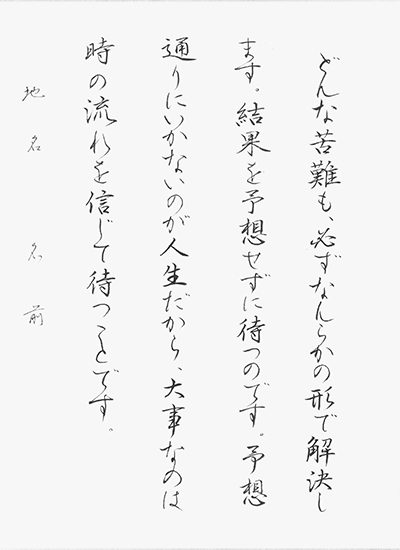 どんな苦難も、必ずなんらかの形で解決し
ます。結果を予想せずに待つのです。予想
通りにいかないのが人生だから、大事なのは
時の流れを信じて待つことです。
地名 名前